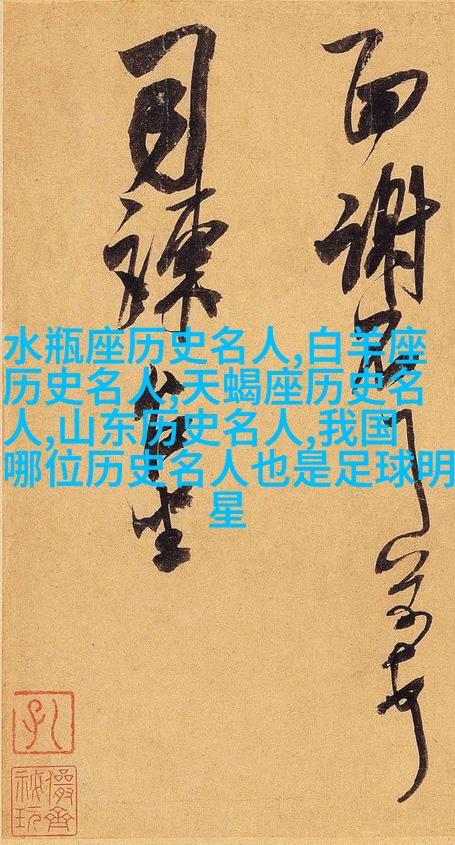 水瓶座历史名人,白羊座
历史名人,天蝎座历史名
人,山东历史名人,我国
哪位历史名人也是足球明
星
面謝
司諫
坐
儼齋
秘玩